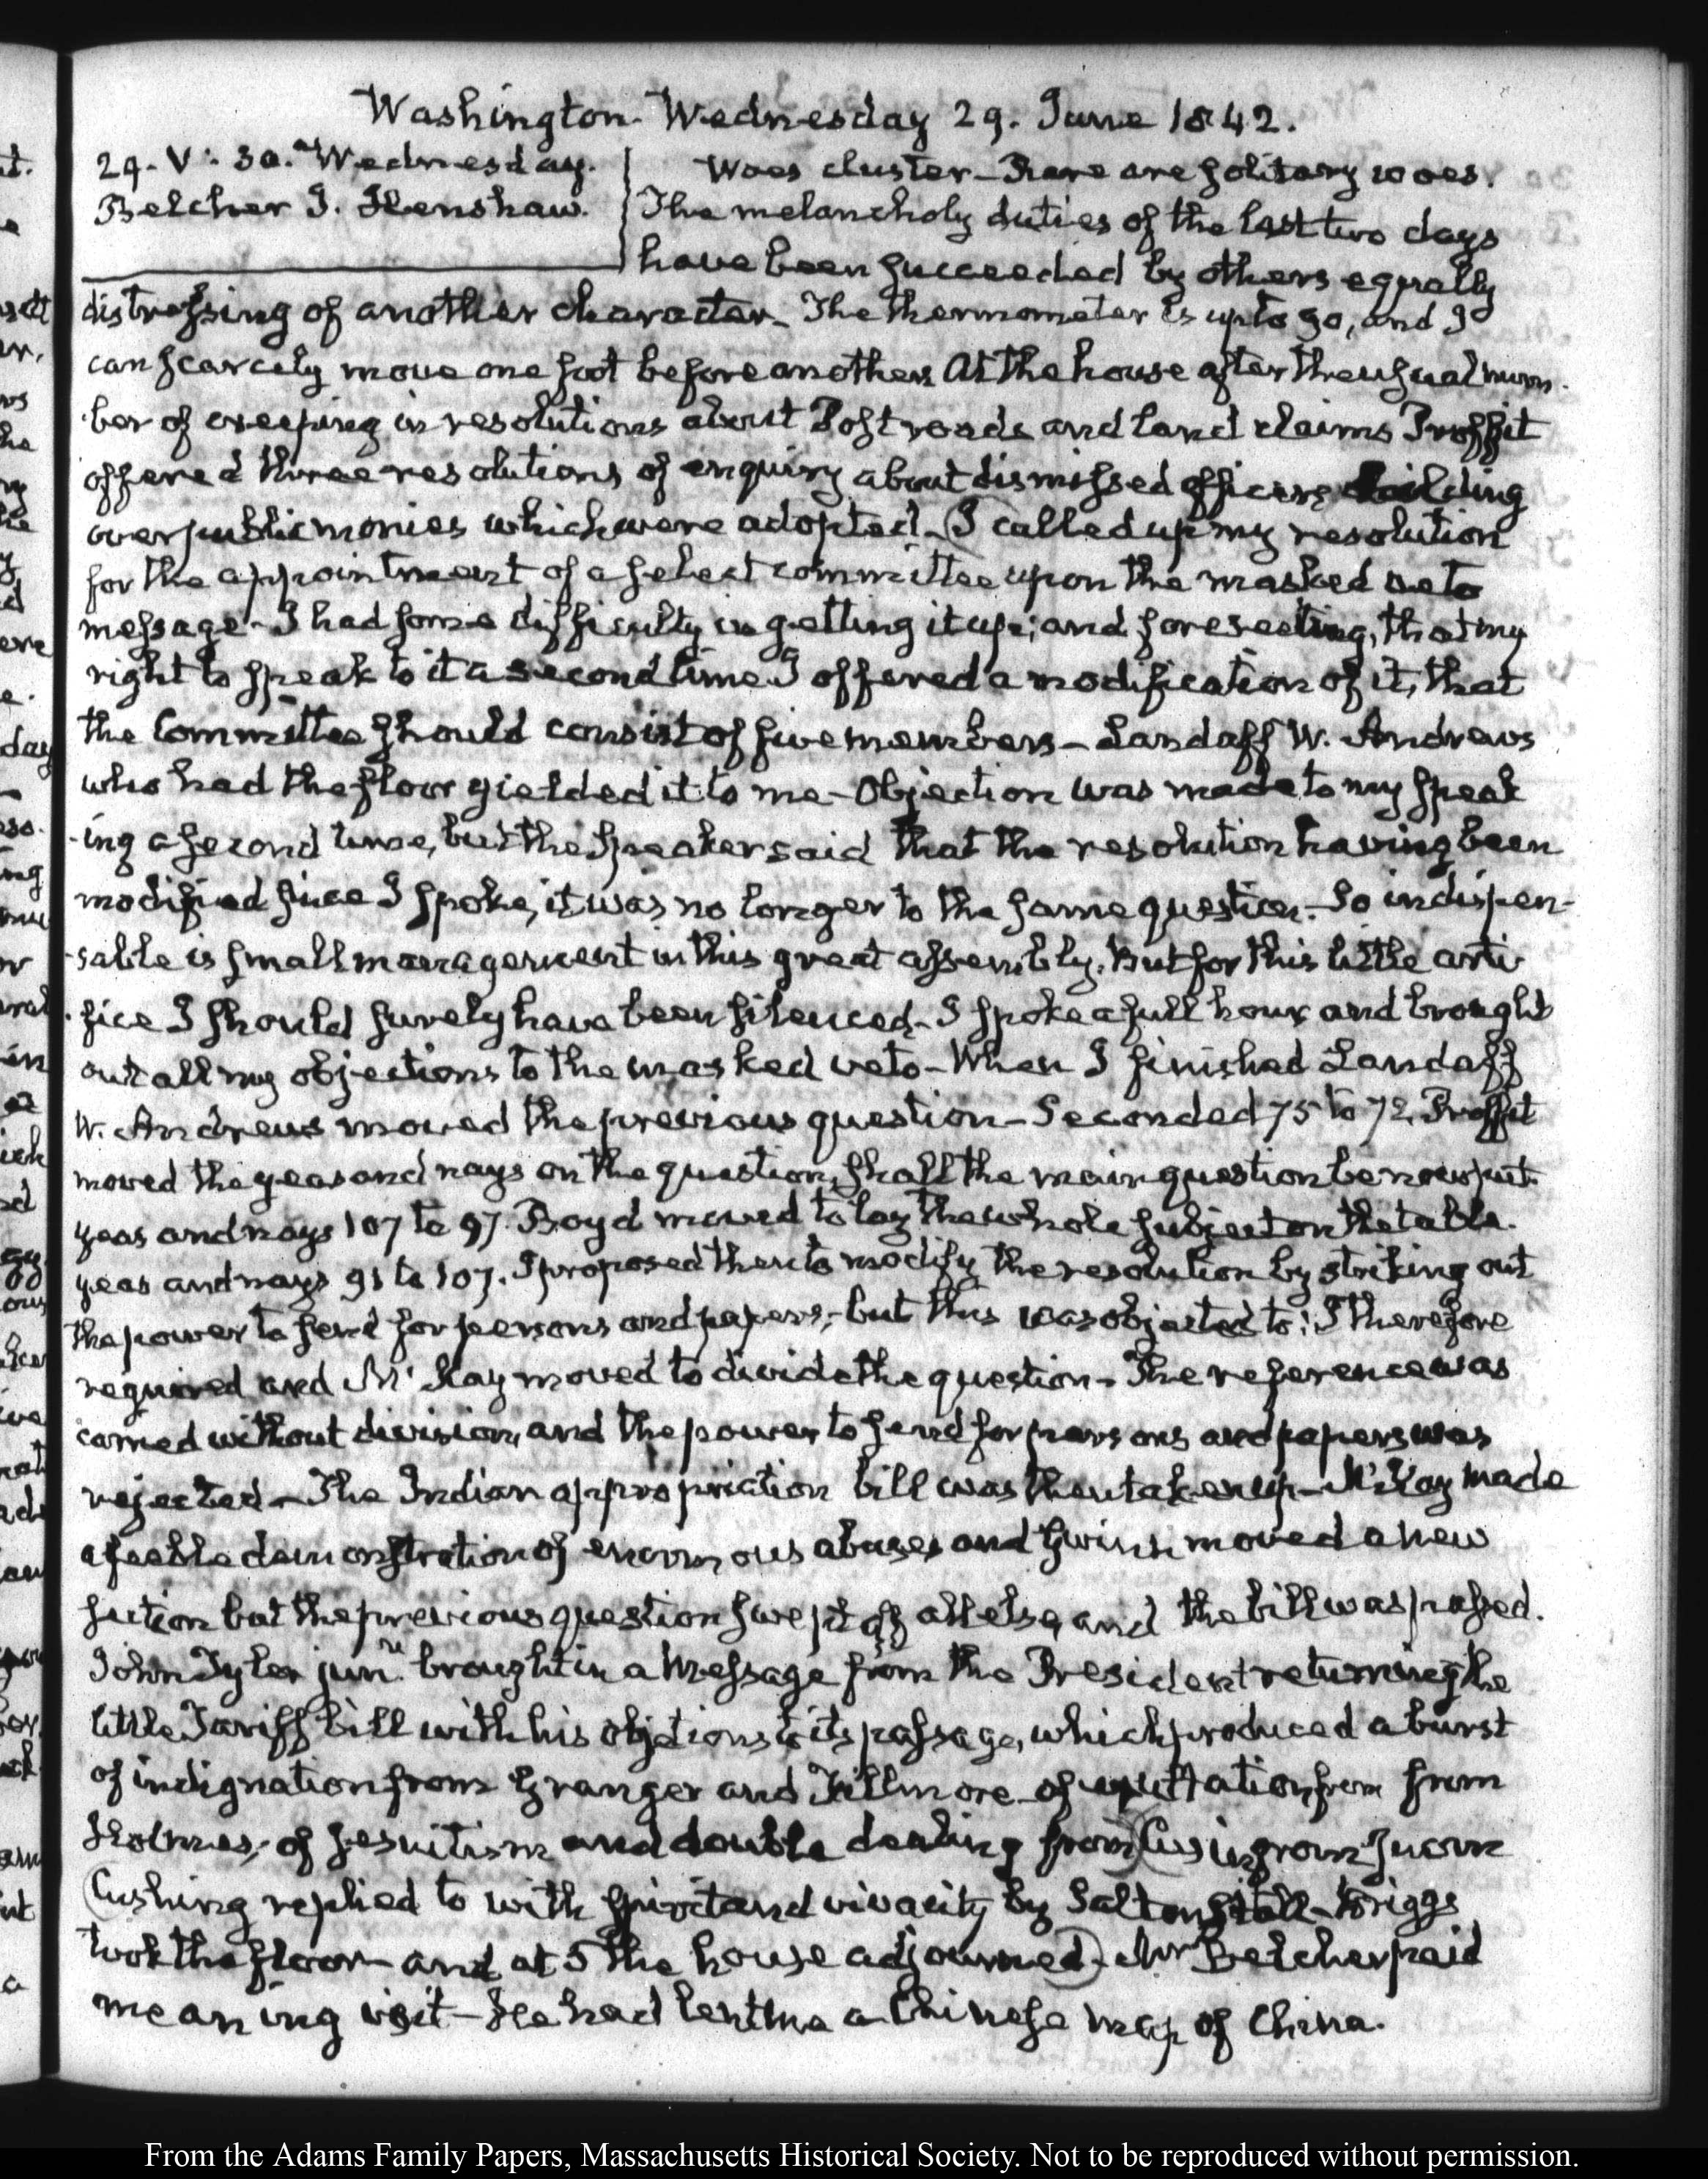 Washington Wednesday 29. June 1842.
29. V: 30. Wednesday.
Belcher J. Henshaw.
Woes cluster—Rare are solitary woes.
The melancholy duties of the last two days
have been succeeded by others equally
distressing of another character— The thermometer is up to 90, and I
can scarcely move one foot before another. At the house after the usual num
ber of creeping in resolutions about Post roads and land claims Proffit
offered three resolutions of enquiry about dismissed officers
over public monies which were adopted—I called up my resolution
for the appointment of a select committee upon the masked veto
message—I had some difficulty in getting it up; and foreseeing, that my
right to speak to it a second time I offered a modification of it, that
the Committee should consist of five members—Landaff W. Andrews
who had the floor yielded it to me—Objection was made to my speak
-ing a second time, but the Speaker said that the resolution having been
modified since I spoke, it was no longer to the same question.—So indispen-
-sable is small management in this great assembly. But for this little arti
-fice I should surely have been silenced—I spoke a full hour and brought
out all my objections to the masked veto—When I finished Landaff
W. Andrews moved the previous question—Seconded 75 to 72. Proffit
moved the yeas and nays on the question, shall the main question be now put.
yeas and nays 107 to 97. Boyd moved to lay the whole subject on the table.
yeas and nays 91 to 107. I proposed then to modify the resolution by striking out
the power to send for persons and papers; but this was objected to: I therefore
required and McKay moved to divide the question— The reference was
carried without division, and the power to send for persons and papers was
rejected—The Indian appropriation bill was then taken up—McKay made
a feeble demonstration of enormous abuses and Gwinn moved a new
section but the previous question swept off all else, and the bill was passed.
John Tyler junr. brought in a Message from the President returning the
little Tariff bill with his objections to its passage, which produced a burst
of indignation from Granger and Fillmore—of from from
Holmes; of jesuitism and double dealing from
Cushing replied to with spirit and vivacity by Saltonstall—Briggs
took the floor—and at 5 the house adjourned—Mr Belcher paid
me an ing visit—He had lent me a Chinese map of China.
From the Adams Family Papers, Massachusetts Historical Society. Not to be reproduced without permission.